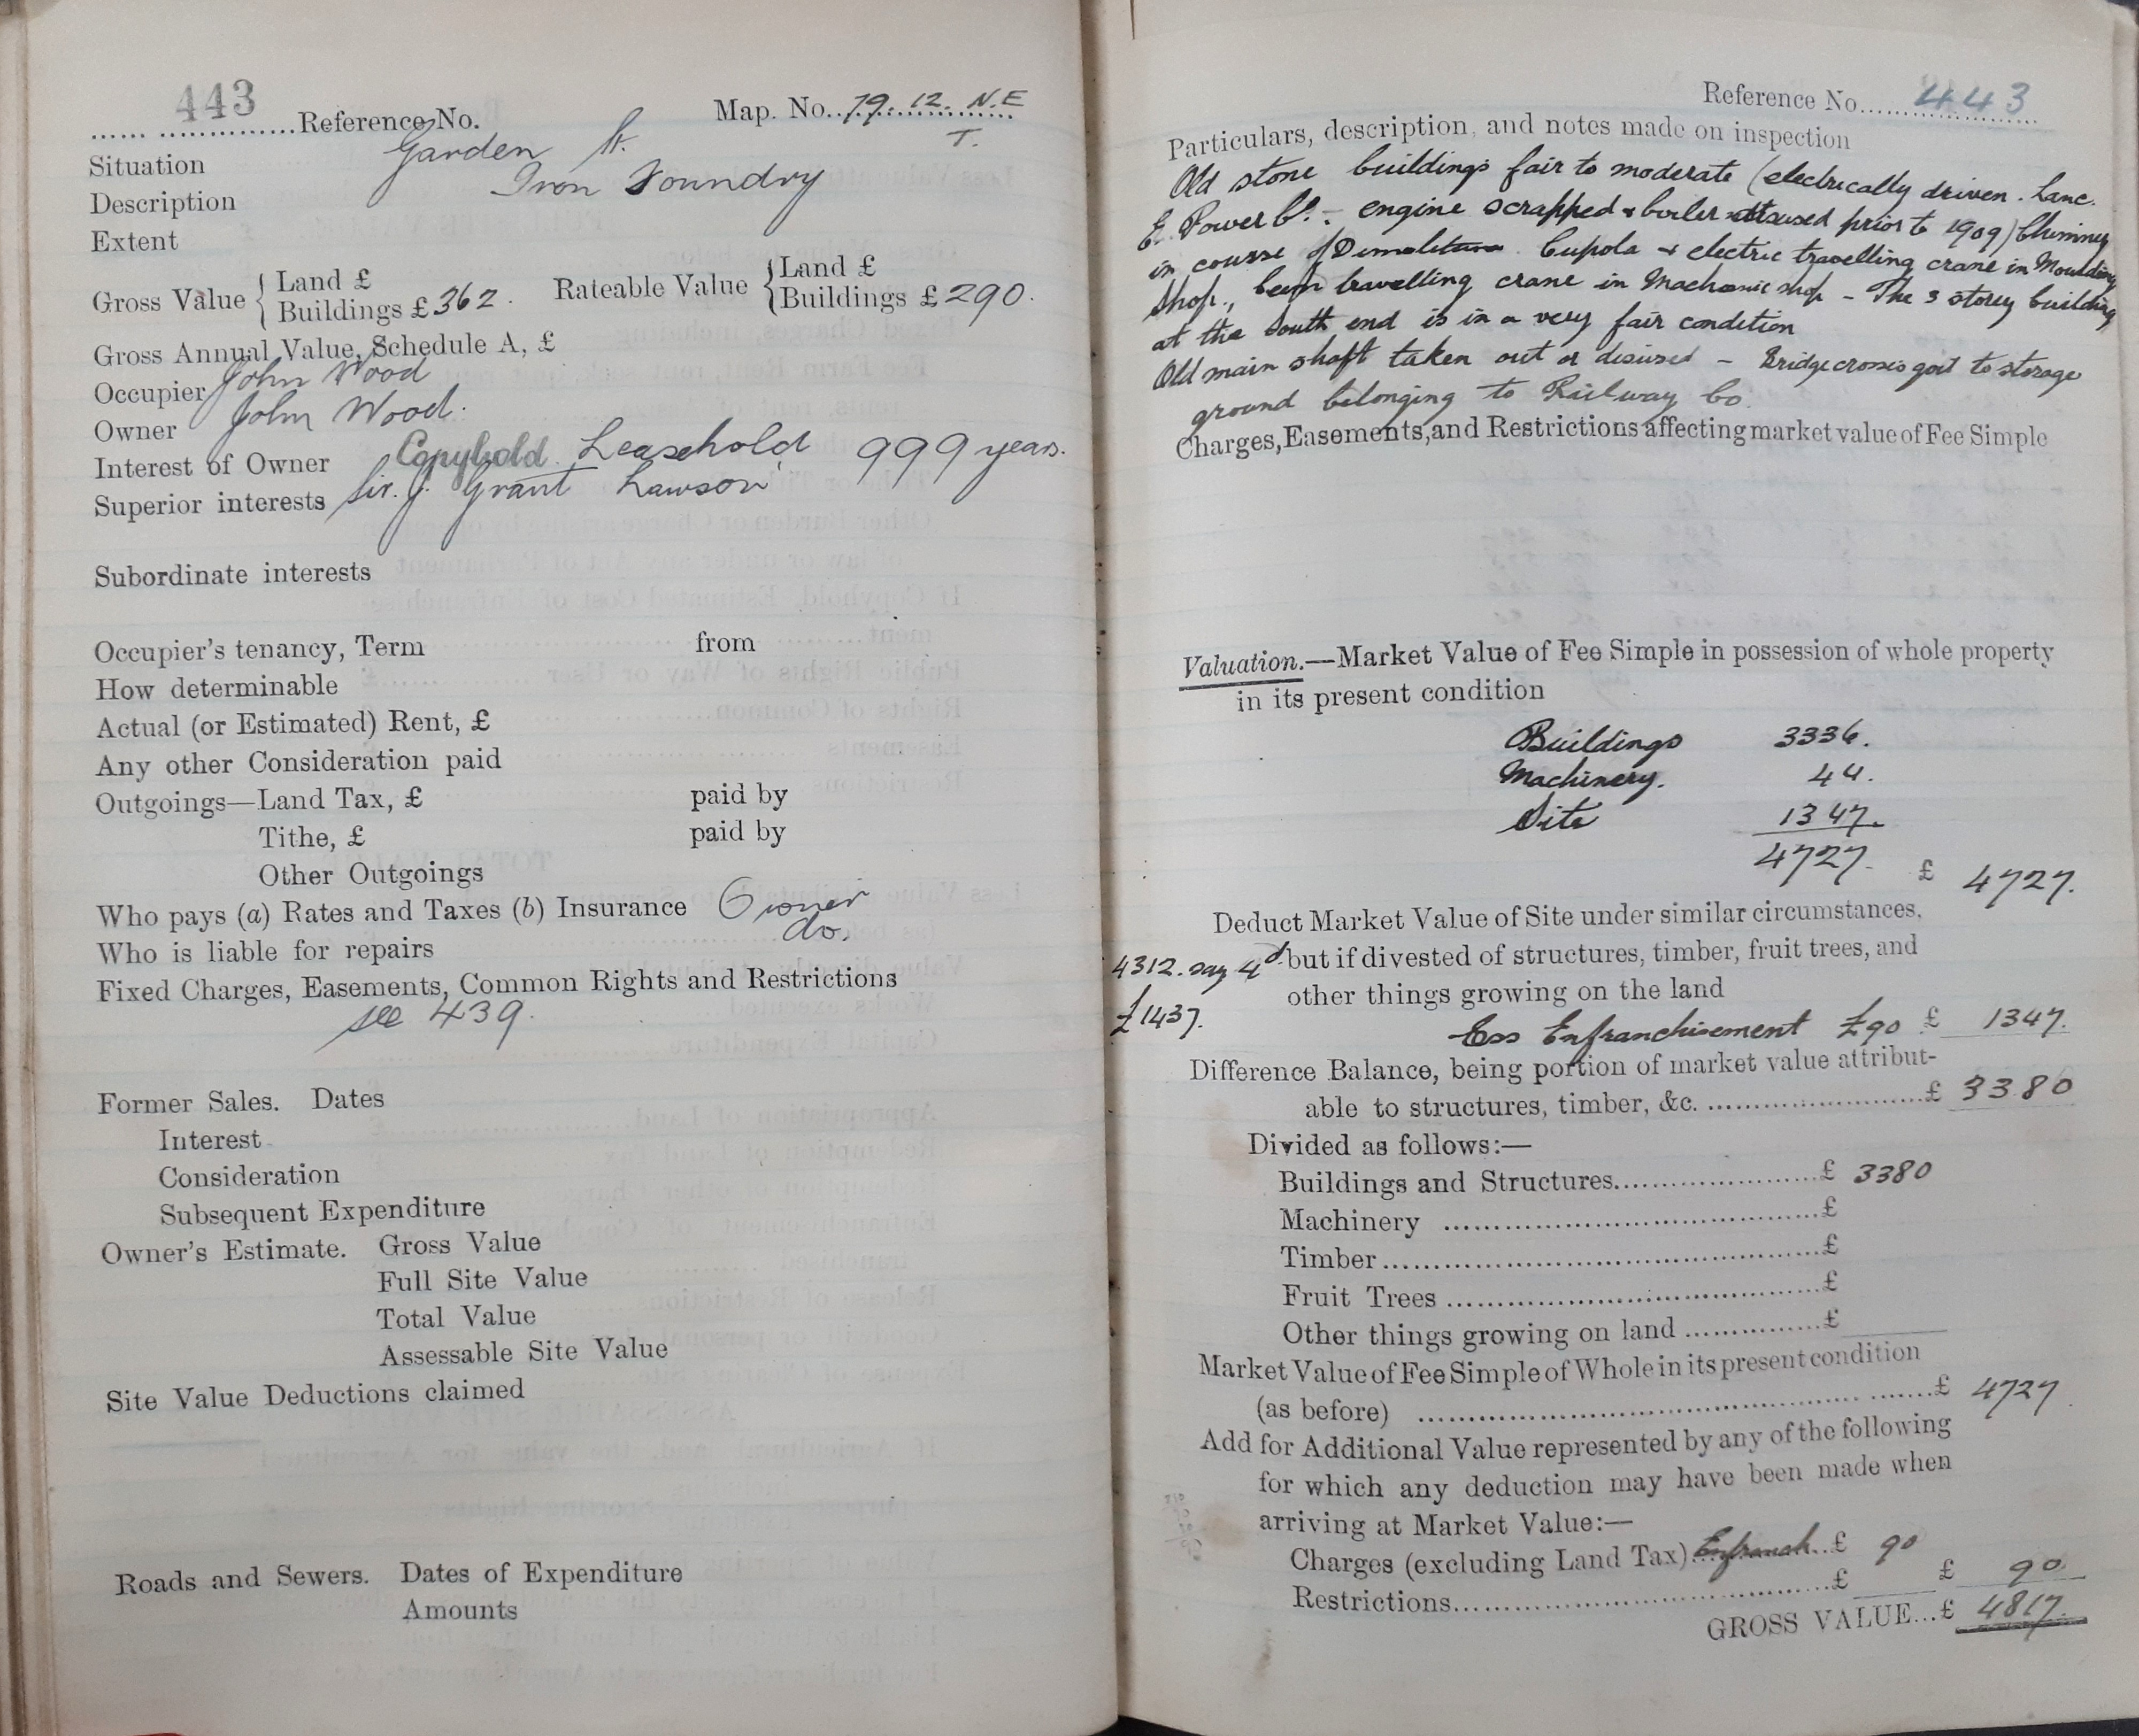 443
Reference No. Map. No. 79. 12. N.E
T.
Situation Garden St.
Description Iron Foundry
Extent
Gross Value { Land £ Rateable Value { Land £
Buildings £ 362. Buildings £ 290.
Gross Annual Value, Schedule A, £
Occupier John Wood
Owner John Wood.
Interest of Owner Copyhold Leasehold 999 years.
Superior interests Sir. J. Grant Lawson
Subordinate interests
Occupier's tenancy, Term from
How determinable
Actual (or Estimated) Rent, £
Any other Consideration paid
Outgoings—Land Tax, £ paid by
Tithe, £ paid by
Other Outgoings
Who pays (a) Rates and Taxes (b) Insurance Owner
Who is liable for repairs do.
Fixed Charges, Easements, Common Rights and Restrictions
see 439.
Former Sales. Dates
Interest
Consideration
Subsequent Expenditure
Owner's Estimate. Gross Value
Full Site Value
Total Value
Assessable Site Value
Site Value Deductions claimed
Roads and Sewers. Dates of Expenditure
Amounts
Reference No. 443
Particulars, description, and notes made on inspection
Old stone buildings fair to moderate (electrically driven. Lanc.
E. Power Co. - engine scrapped & boiler disused prior to 1909) Chimney
in course of Demolition. Cupola & electric travelling crane in Moulding
Shop., beam travelling crane in Mechanic shop - The 3 storey building
at the South end is in a very fair condition
Old main shaft taken out or disused - Bridge crosses goit to storage
ground belonging to Railway Co.
Charges, Easements, and Restrictions affecting market value of Fee Simple
Valuation.—Market Value of Fee Simple in possession of whole property
in its present condition
Buildings 3336.
Machinery. 44.
Site 1347.
4727. £ 4727.
Deduct Market Value of Site under similar circumstances,
4312. say 4d but if divested of structures, timber, fruit trees, and
other things growing on the land
£1437. Less Enfranchisement £90 £ 1347.
Difference Balance, being portion of market value attribut-
able to structures, timber, &c. £ 3380
Divided as follows:—
Buildings and Structures £ 3380
Machinery £
Timber £
Fruit Trees £
Other things growing on land £
Market Value of Fee Simple of Whole in its present condition
(as before) £ 4727
Add for Additional Value represented by any of the following
for which any deduction may have been made when
arriving at Market Value:—
Charges (excluding Land Tax) Enfranch. £ 90
Restrictions £ £ 90.
GROSS VALUE...£ 4817.